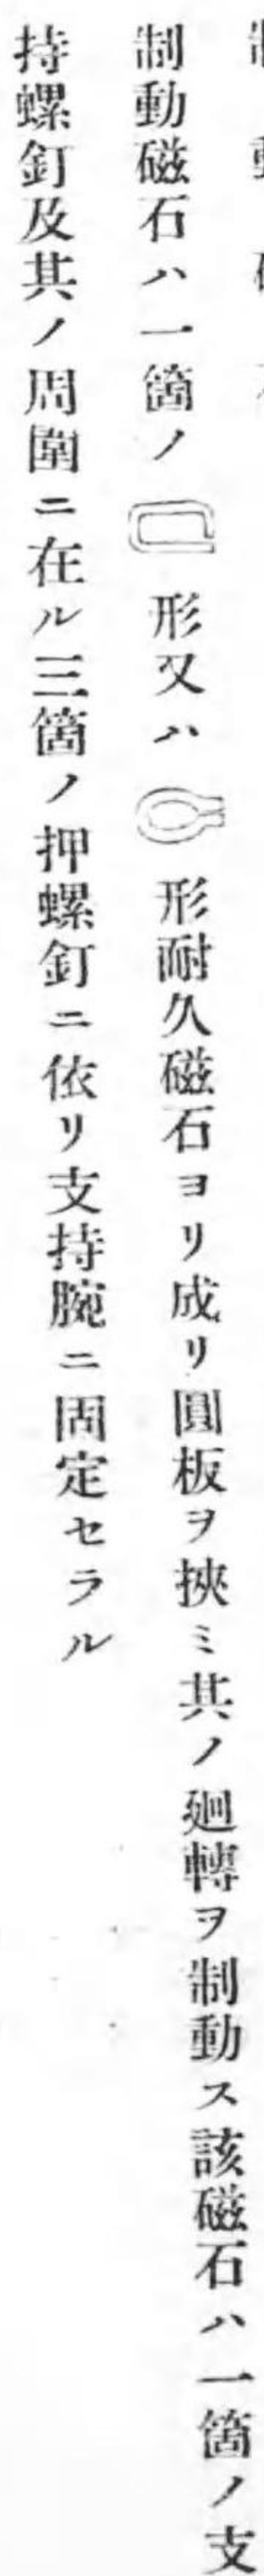 制動磁石ハ一箇ノ 形又ハ 形耐久磁石ヨリ成リ圓板ヲ挾ミ其ノ廻轉ヲ制動ス該磁石ハ一箇ノ支
持螺釘及其ノ周圍ニ在ル三箇ノ押螺釘ニ依リ支持腕ニ固定セラル